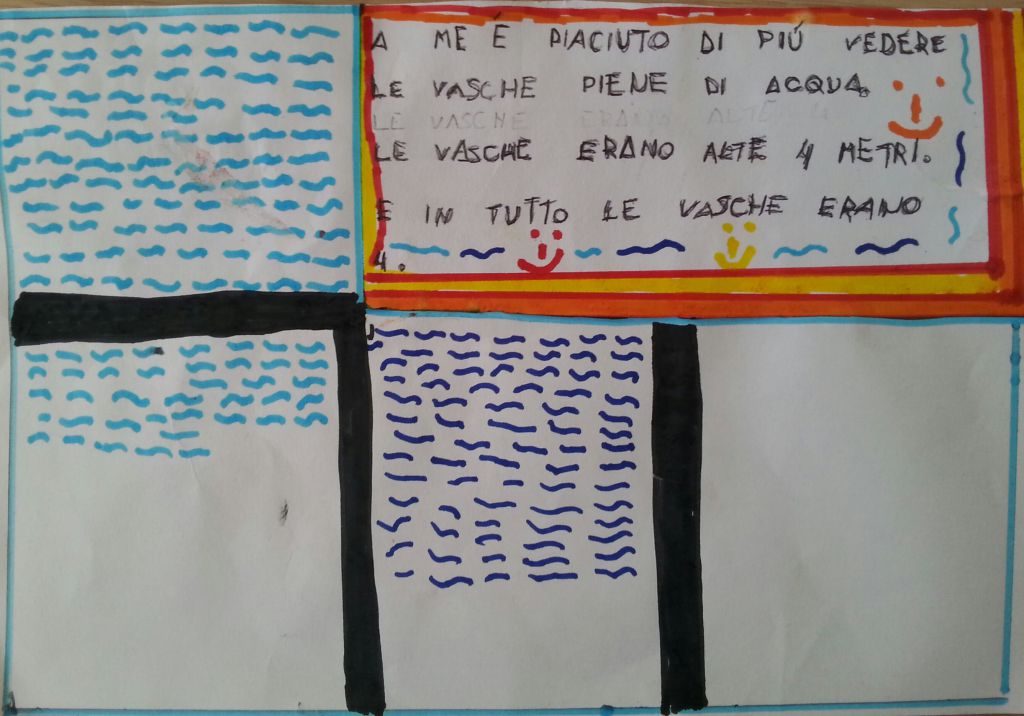 A ME É PIACIUTO DI PIÚ VEDERE
LE VASCHE PIENE DI ACQUA.
LE VASCHE ERANO ALTE 4
LE VASCHE ERANO ALTE 4 METRI.
E IN TUTTO LE VASCHE ERANO
4.